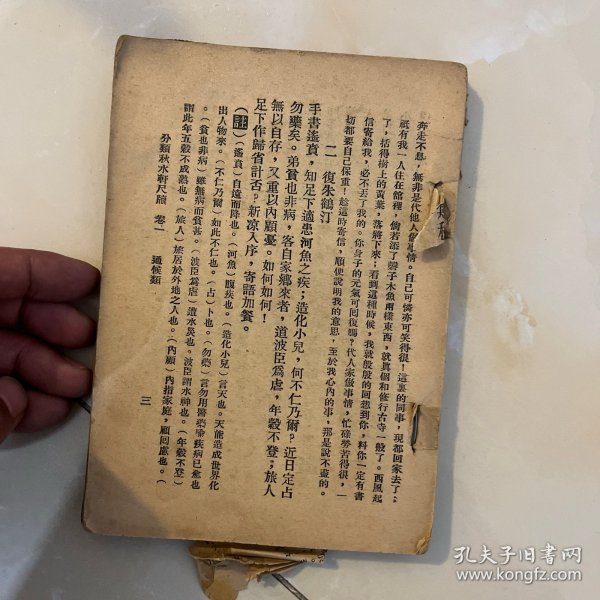 奔走不息，無非是代他人做事情。自己可憐亦可笑得很！這裏的同事，現都回家去了；
祇有我一人住在館裡，倘若添了磬子木魚兩樣東西，就眞個和修行古寺一般了。西風起
了，括得樹上的黃葉，落將下來；看到這種時候，我就殷殷的回想到你，料你一定有書
信寄給我，必不丟了我的。你身子的元氣可回復嗎？代人家做事情，忙碌勞苦得很，一
切都要自己保重！趁這時寄信，順便說明我的意思，至於我心內的事，那是說不盡的。
二　復朱鶴汀
手書遙賁，知足下適患河魚之疾；造化小兒，何不仁乃爾？近日定占
勿藥矣。弟貧也非病，客自家鄉來者，道波臣爲虐，年穀不登；旅人
無以自存，又重以內顧憂。如何如何！
足下作歸省計否？新涼入序，寄語加餐。
（註）（遙賁）自遠而降也。（河魚）腹疾也。（造化小兒）言天也。天能造成世界化
出人物來。（不仁乃爾）如此不仁也。（占）卜也。（勿藥）言勿用醫藥喻疾病已痊也
。（貧也非病）雖無病而貧甚。（波臣爲虐）遭水災也。波臣謂水神也。（年穀不登）
謂此年五穀不成熟也。（旅人）旅居於外地之人也。（內顧）內指家庭，顧回慮也。（
分類秋水軒尺牘　卷一　通候類　三
孔夫子旧书网
www.kongfz.com